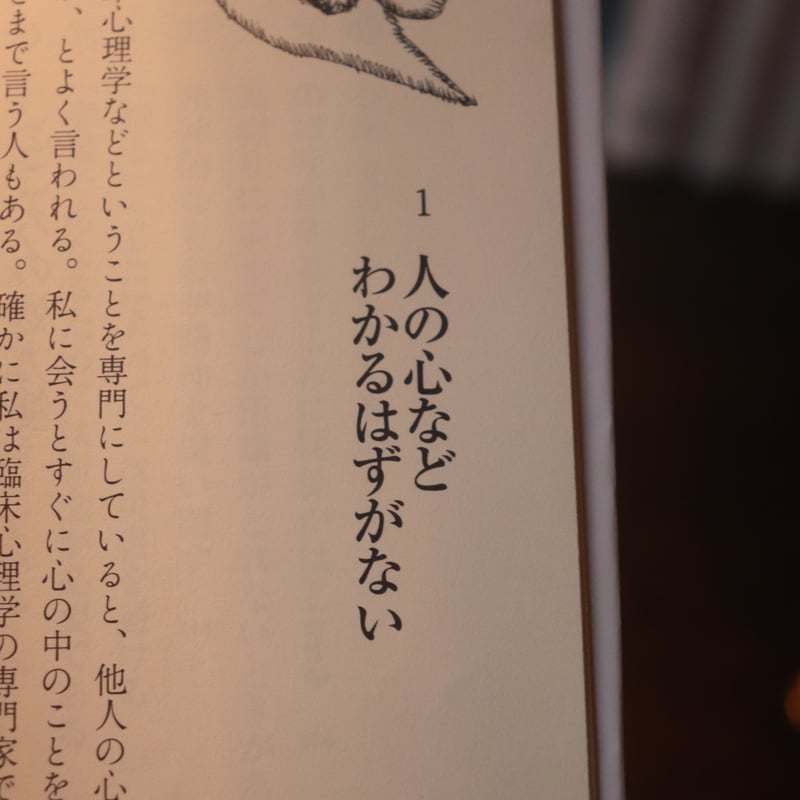 1
人の心など
わかるはずがない
心理学などということを専門にしていると、他人の心
、とよく言われる。私に会うとすぐに心の中のことを
まで言う人もある。確かに私は臨床心理学の専門家で